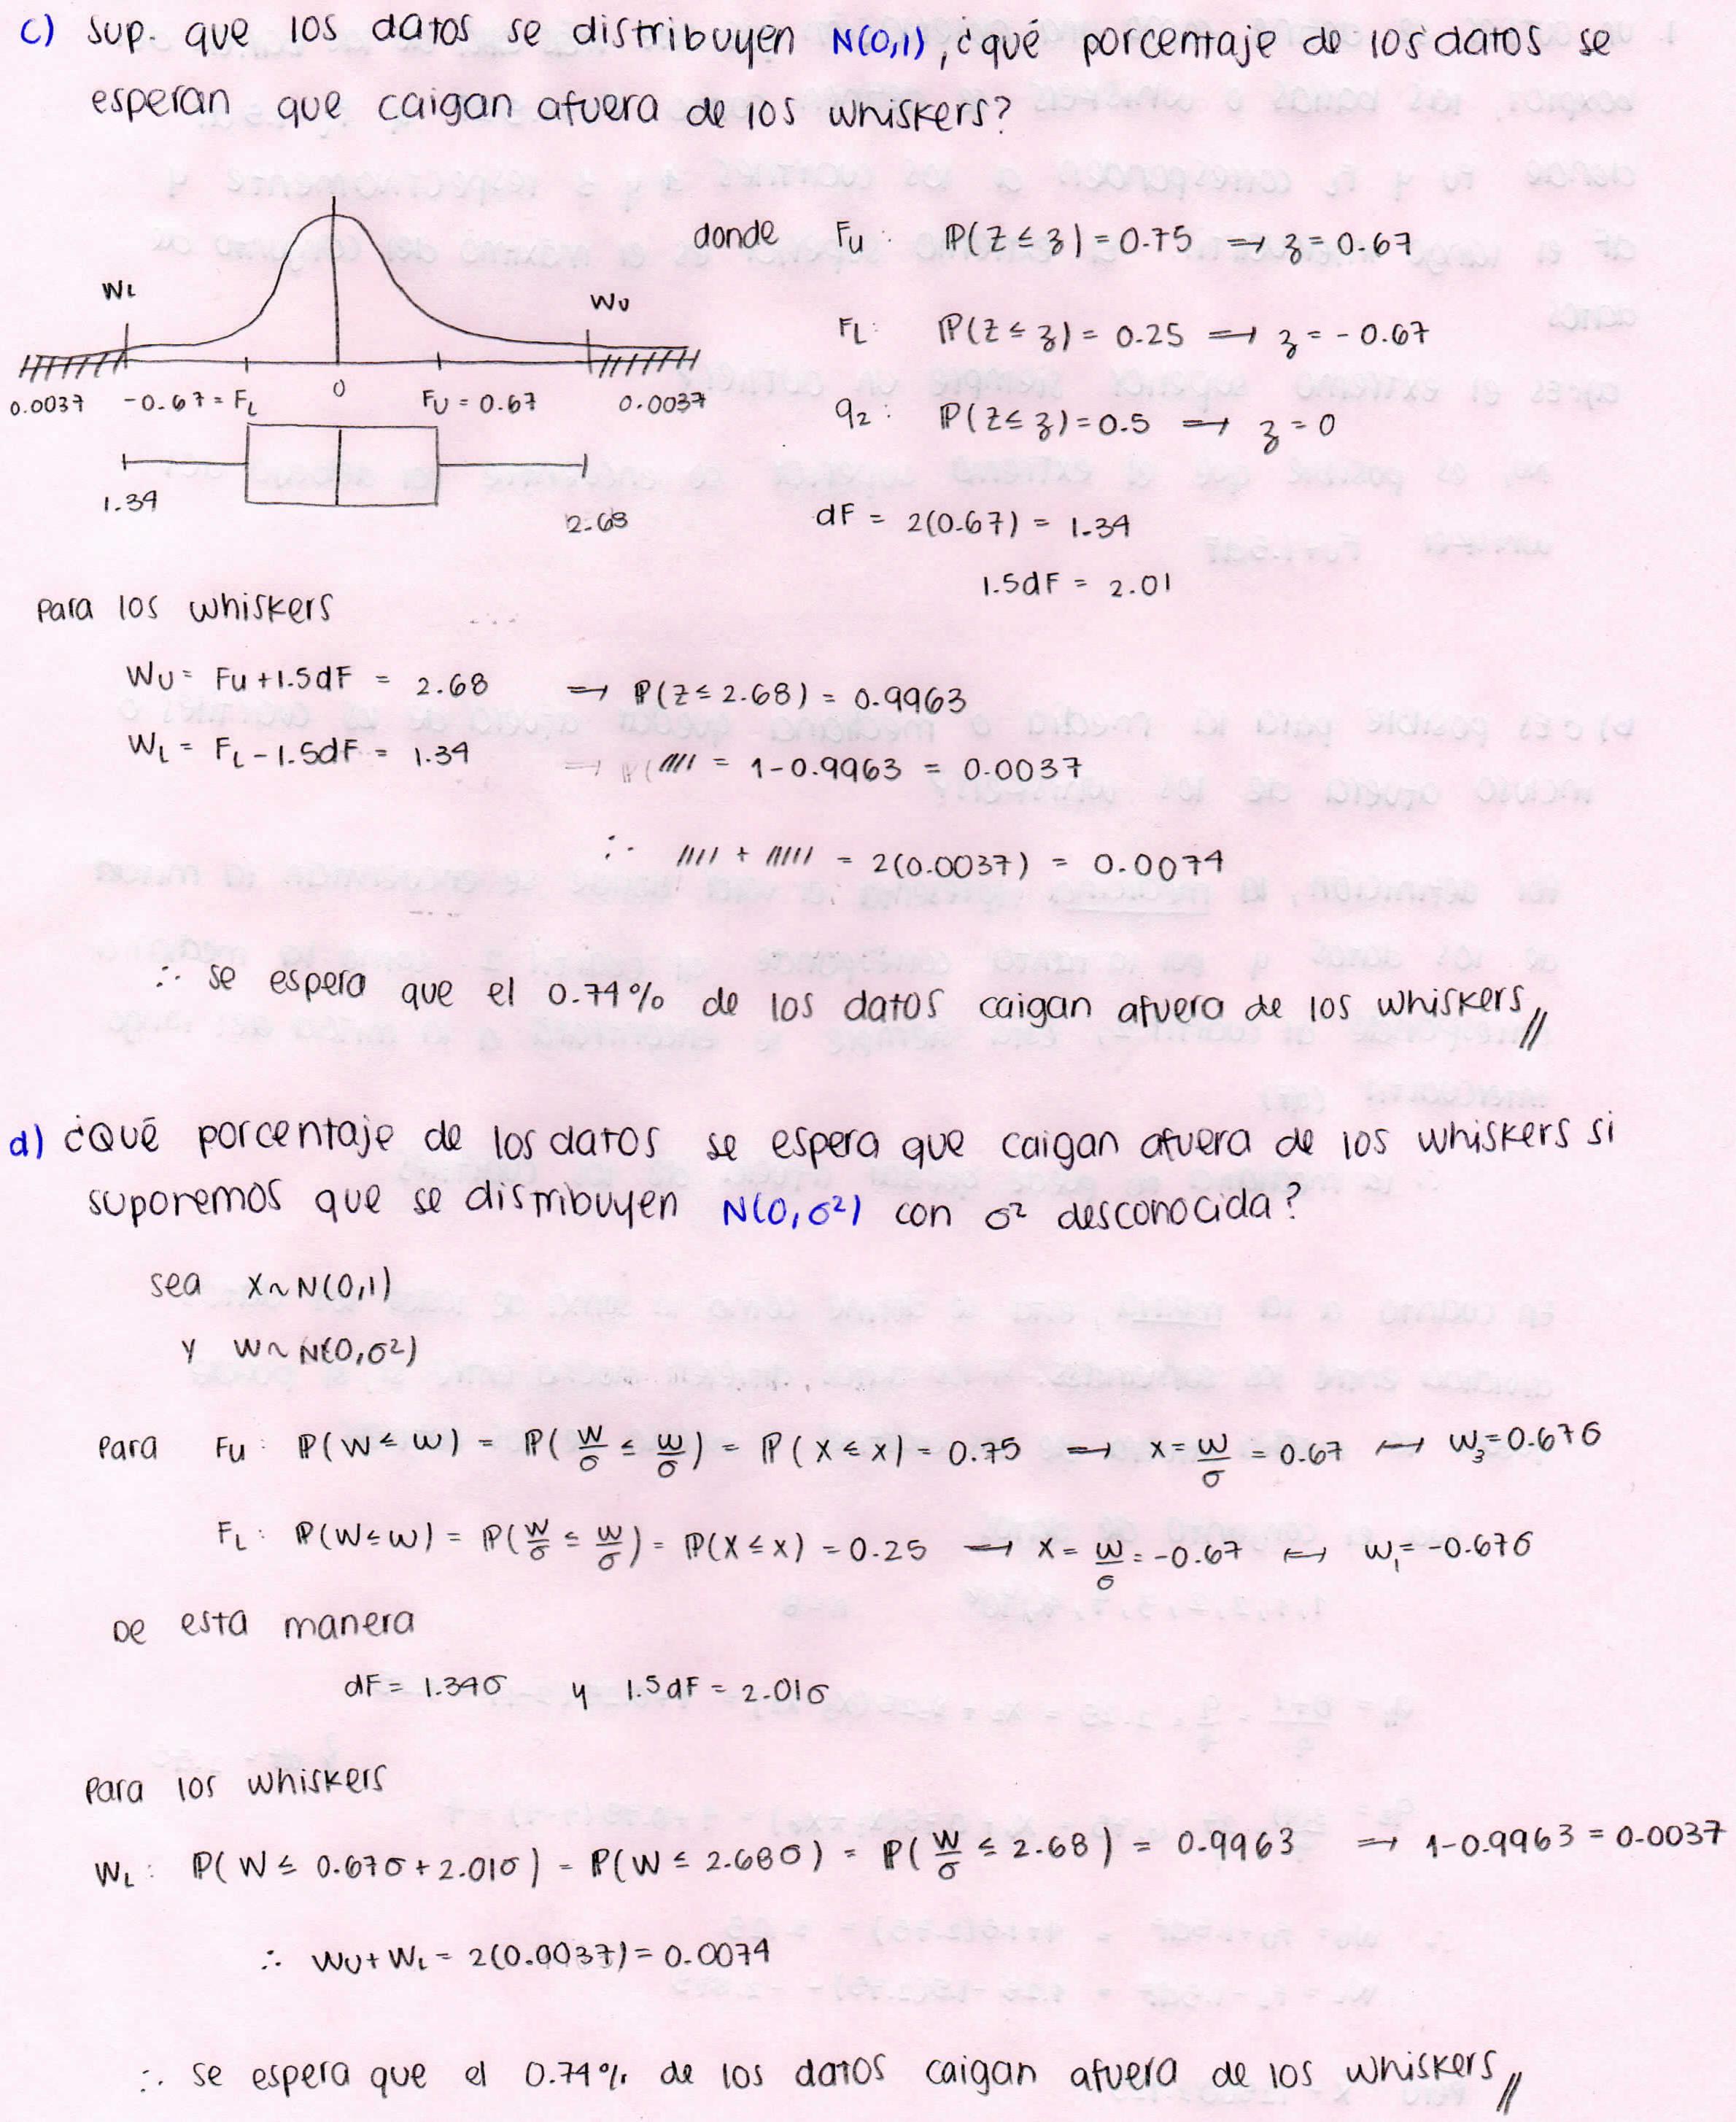 c) sup. que los datos se distribuyen N(0,1), ¿qué porcentaje de los datos se
esperan que caigan afuera de los whiskers?
donde Fu : ℙ(Z ≤ z) = 0.75 → z = 0.67
WL
WU
FL: ℙ(Z ≤ z) = 0.25 → z = -0.67
0.0037 -0.67 = FL 0 FU = 0.67 0.0037
q2 : ℙ(Z ≤ z) = 0.5 → z = 0
1.34
2.68
dF = 2(0.67) = 1.34
1.5dF = 2.01
para los whiskers
WU = FU + 1.5dF = 2.68 → ℙ(Z ≤ 2.68) = 0.9963
WL = FL - 1.5dF = 1.34 → ℙ( //// = 1-0.9963 = 0.0037
∴ //// + ///// = 2(0.0037) = 0.0074
∴ se espera que el 0.74% de los datos caigan afuera de los whiskers //
d) ¿Qué porcentaje de los datos se espera que caigan afuera de los whiskers si
suporemos que se distribuyen N(0,σ²) con σ² desconocida?
sea X ~ N(0,1)
y W ~ N(0,σ²)
Para Fu : ℙ(W ≤ w) = ℙ(W/σ ≤ w/σ) = ℙ(X ≤ x) = 0.75 → x = w/σ = 0.67 ↔ w3 = 0.67σ
FL : ℙ(W ≤ w) = ℙ(W/σ ≤ w/σ) = ℙ(X ≤ x) = 0.25 → x = w/σ = -0.67 ↔ w1 = -0.67σ
De esta manera
dF = 1.34σ y 1.5dF = 2.01σ
Para los whiskers
WL : ℙ(W ≤ 0.67σ + 2.01σ) = ℙ(W ≤ 2.68σ) = ℙ(W/σ ≤ 2.68) = 0.9963 → 1-0.9963 = 0.0037
∴ WU + WL = 2(0.0037) = 0.0074
∴ se espera que el 0.74% de los datos caigan afuera de los whiskers //